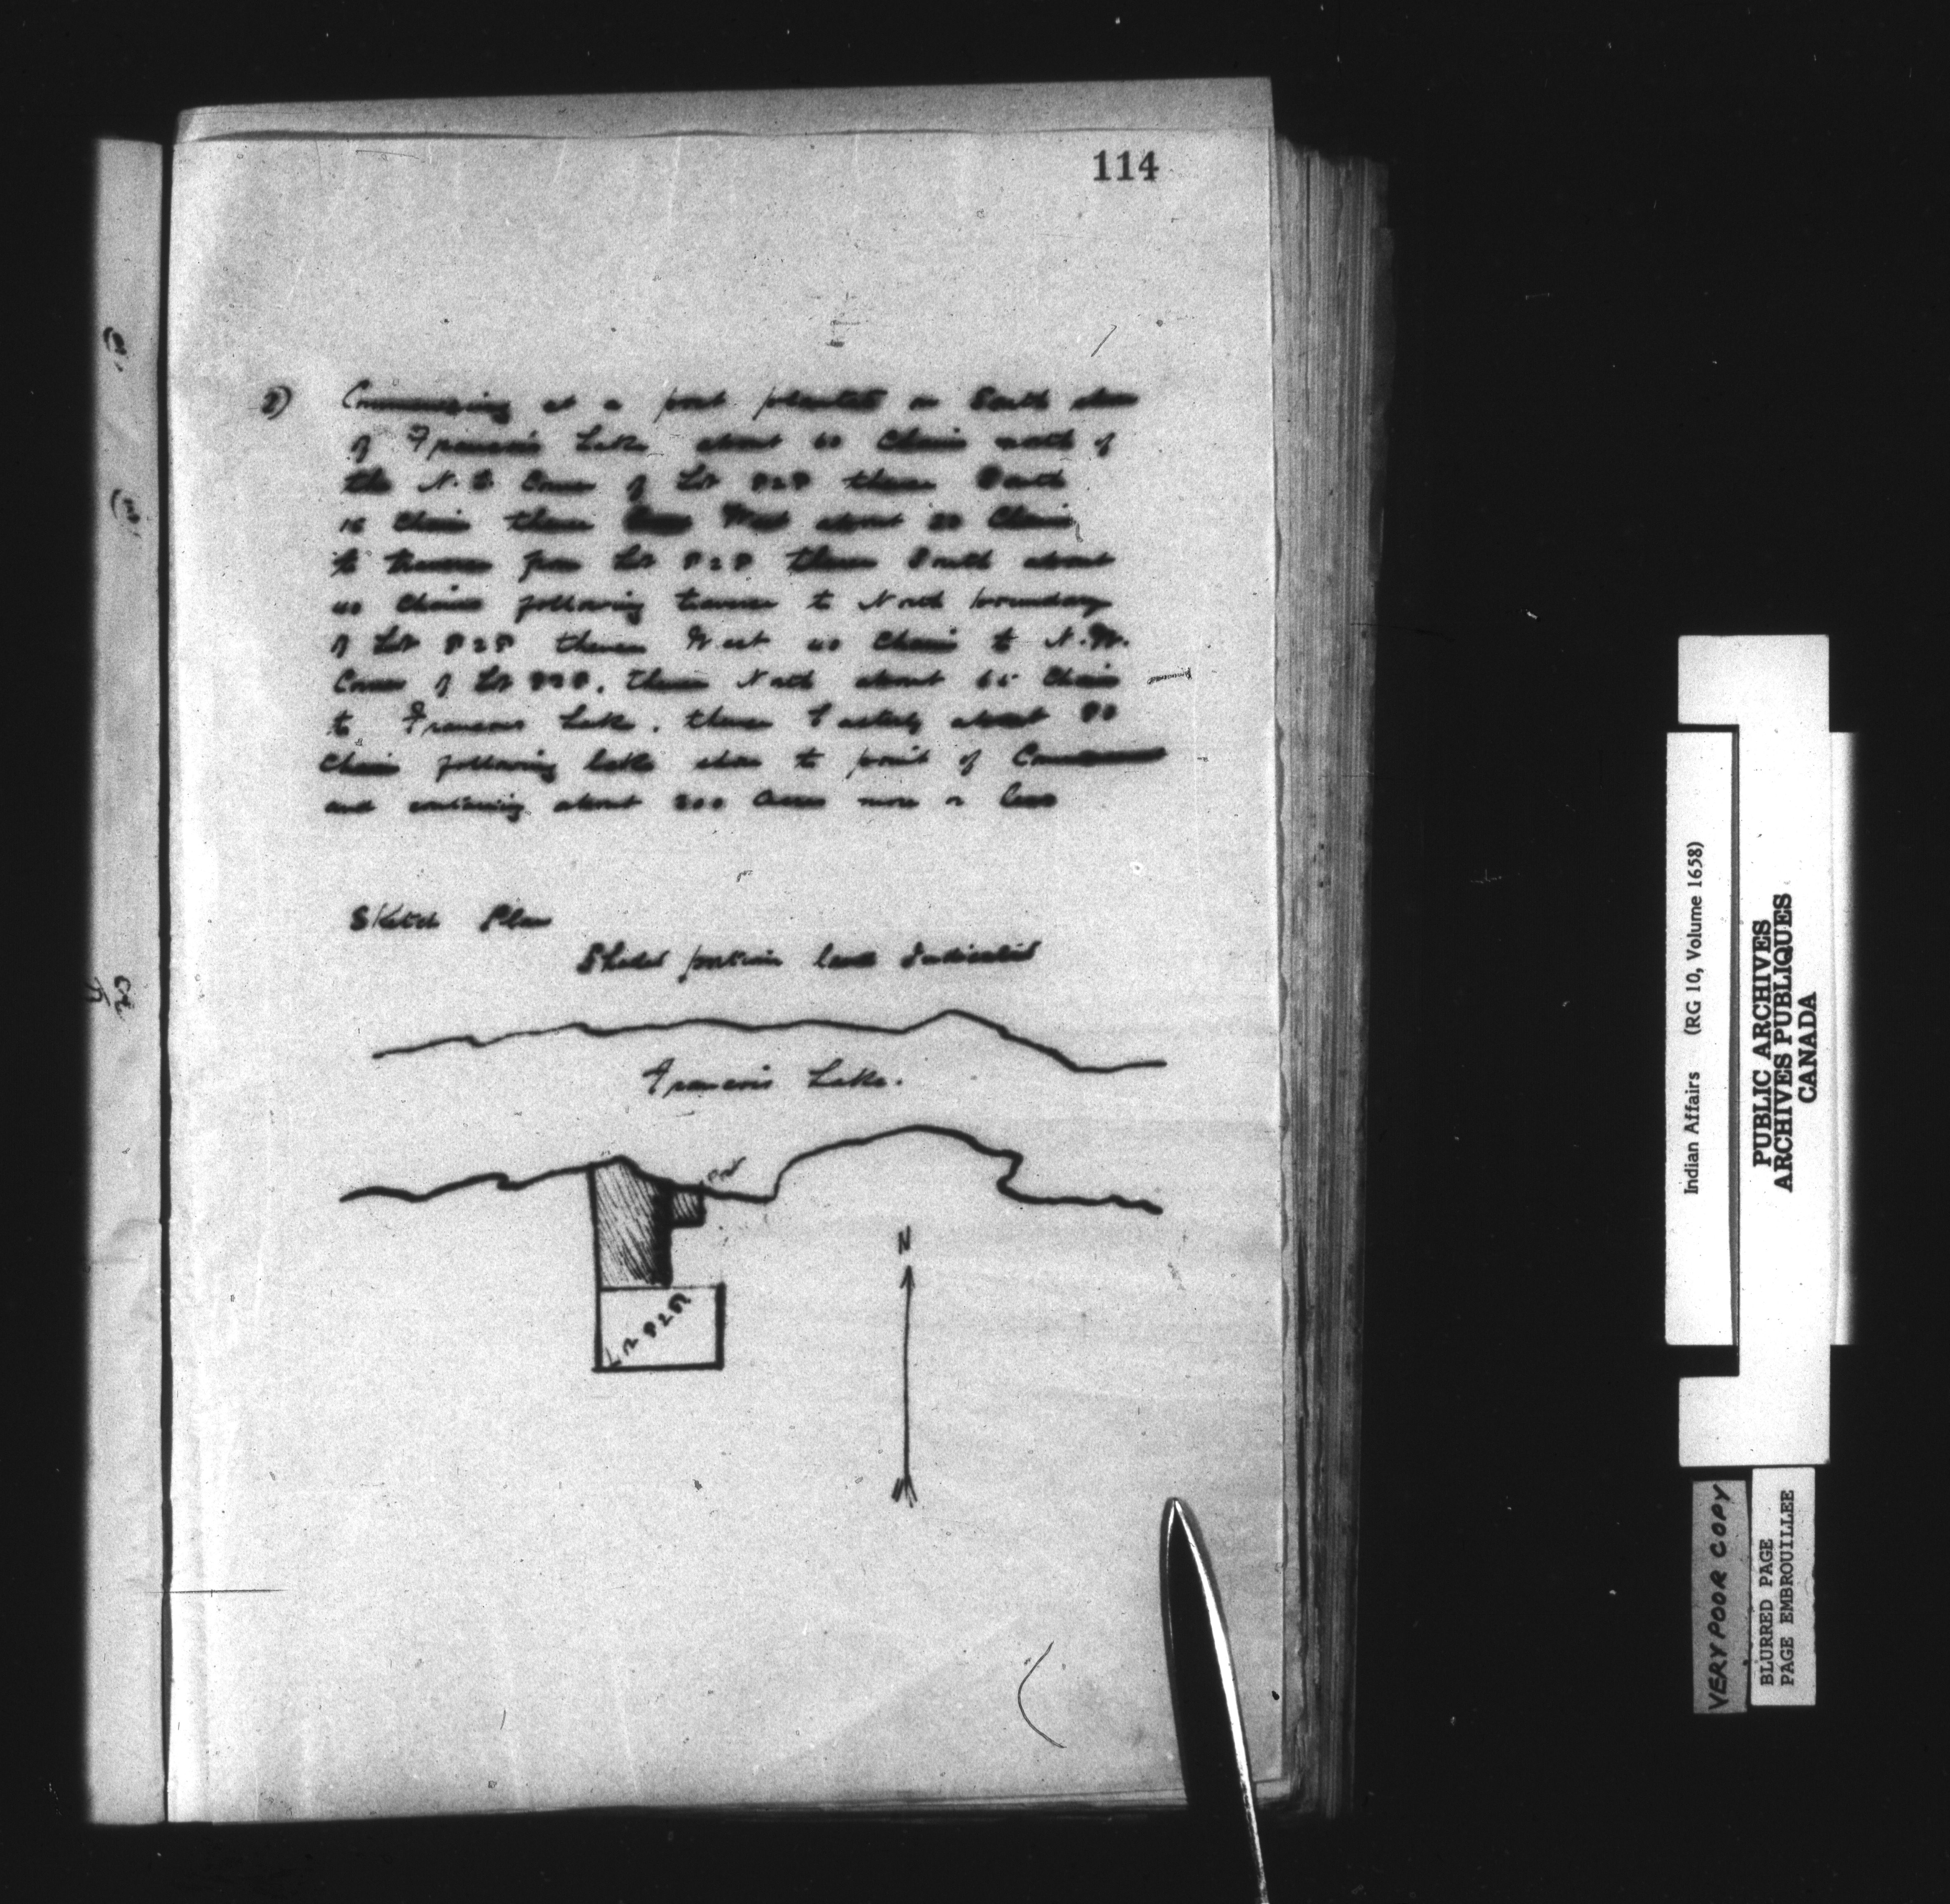 114
2) Commencing at a post planted on South shore
of Francois Lake about 60 Chains north of
the N.E Corner of Lot 828 thence South
16 Chains thence West about 20 Chains
to traverse from Lot 828 thence South about
40 Chains following traverse to North boundary
of Lot 828 thence West 40 Chains to N.W.
Corner of Lot 828. thence North about 65 Chains
to Francois Lake. thence Easterly about 80
Chains following lake shore to point of Commencement
and containing about 200 acres more or less
Sketch Plan
Shaded portion land Indicated
Francois Lake.
N
Lot 828
Indian Affairs (RG 10, Volume 1658)
PUBLIC ARCHIVES
ARCHIVES PUBLIQUES
CANADA
VERY POOR COPY
BLURRED PAGE
PAGE EMBROUILLEE